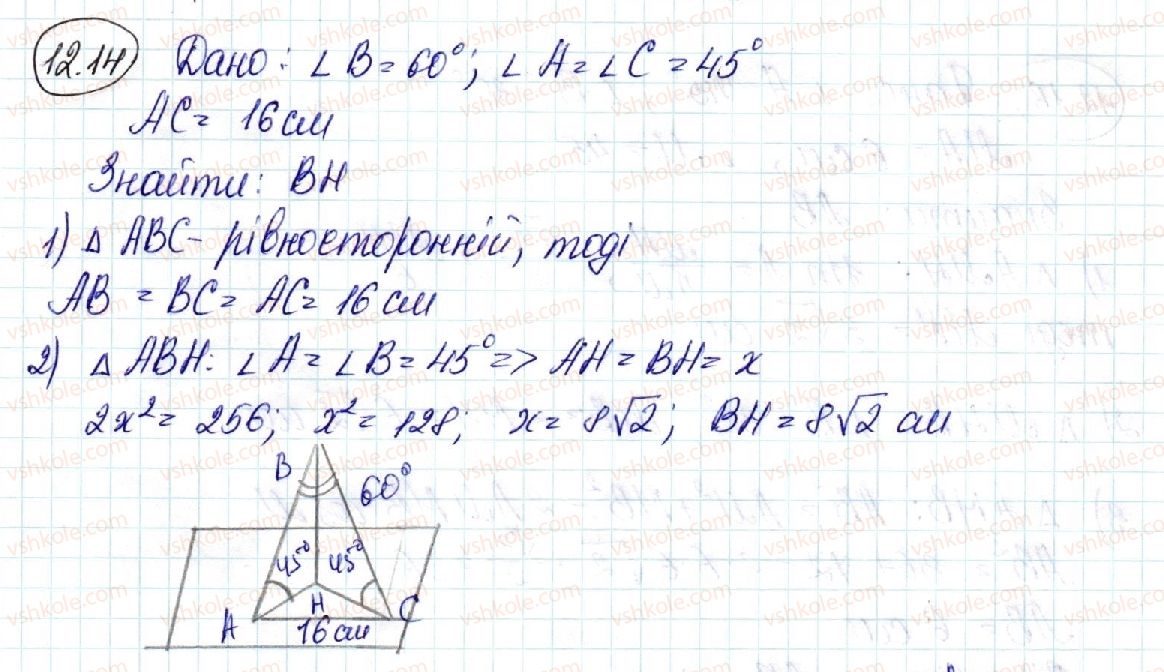 12.14 Дано: ∠B = 60°; ∠A = ∠C = 45°
AC = 16 см
Знайти: BH
1) △ ABC - рівносторонній, тоді
AB = BC = AC = 16 см
2) △ ABH: ∠A = ∠B = 45° => AH = BH = x
2x² = 256; x² = 128; x = 8√2; BH = 8√2 см
B 60°
45° 45°
A H C
16 см
vshkole.com